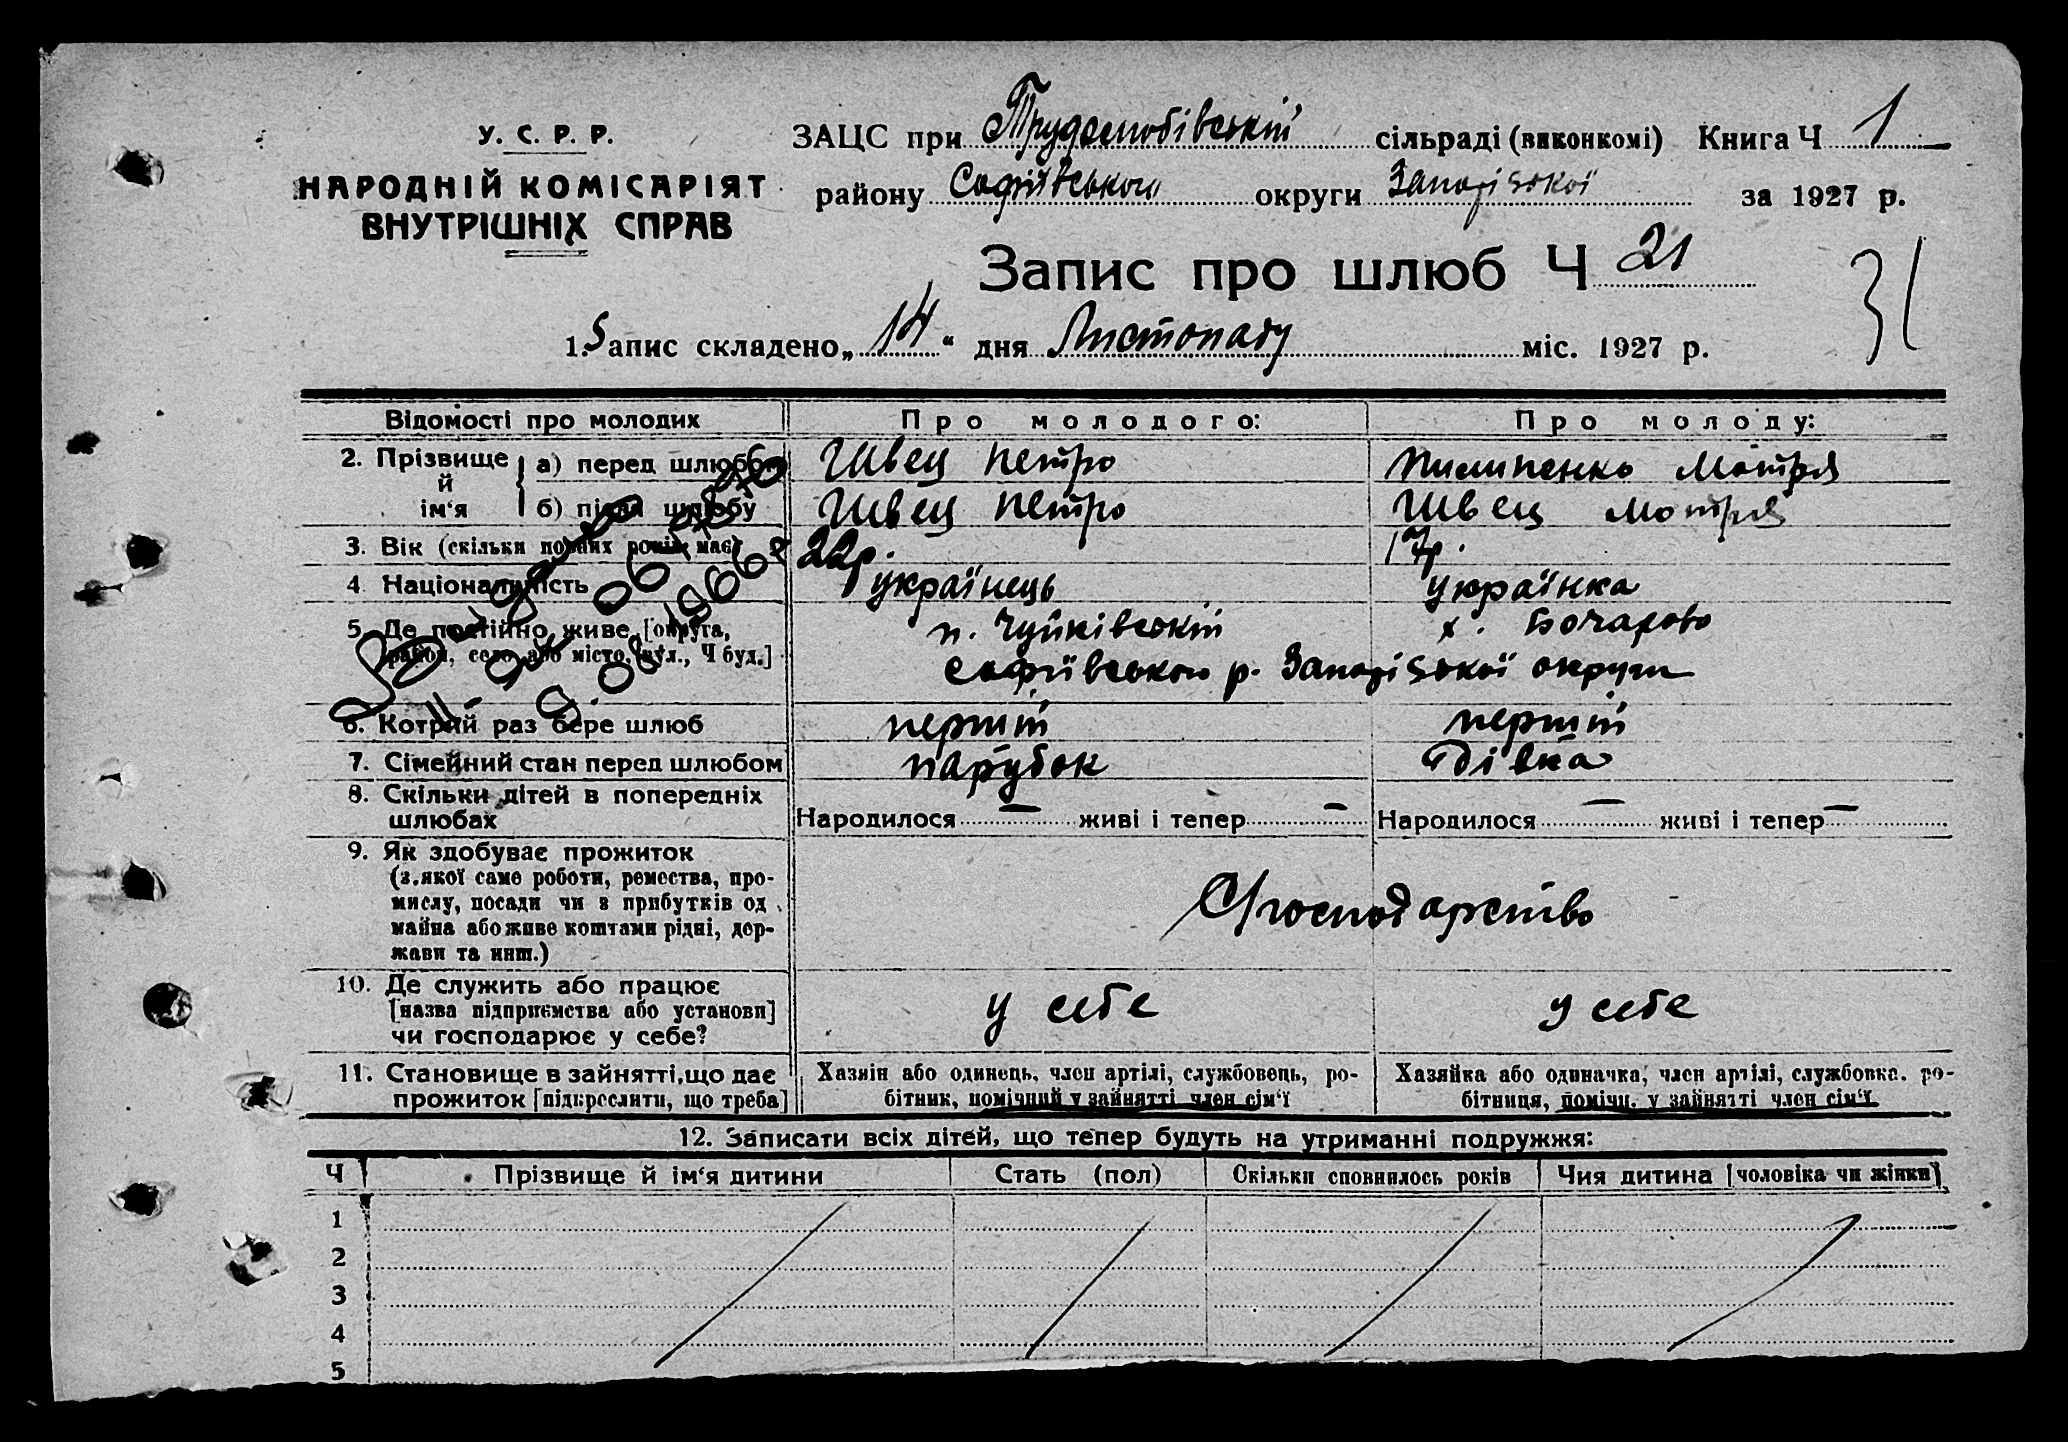 У. С. Р. Р.
НАРОДНІЙ КОМІСАРІЯТ
ВНУТРІШНІХ СПРАВ
ЗАЦС при Трудолюбівській сільраді (виконкомі) Книга Ч 1
району Софіївського округи Запорізької за 1927 р.
Запис про шлюб Ч 21
31
1. Запис складено „14“ дня Листопаду міс. 1927 р.
Відомості про молодих Про молодого: Про молоду:
2. Прізвище й ім‘я а) перед шлюбом Швец Петро Пилипенко Мотря
б) після шлюбу Швец Петро Швец Мотря
3. Вік (скільки повних років має) 22р. 17р.
4 Національність українець українка
5. Де постійно живе [округа, район, село або місто, вул., Ч буд.] п. Чуйківській х. Бочарово
Софіївського р. Запорізької округи
6. Котрий раз бере шлюб перший перший
7. Сімейний стан перед шлюбом парубок дівка
8. Скільки дітей в попередніх шлюбах Народилося — живі і тепер — Народилося — живі і тепер —
9. Як здобуває прожиток
(з якої саме роботи, ремества, про-
мислу, посади чи з прибутків од
майна або живе коштами рідні, дер-
жави та инш.)
господарство
10. Де служить або працює
[назва підприємства або установи]
чи господарює у себе?
у себе у себе
11. Становище в зайнятті, що дає
прожиток [підкреслити, що треба]
Хазяїн або одинець, член артілі, службовець, ро-
бітник, помічний у зайнятті член сім‘ї
Хазяйка або одиначка, член артілі, службовка, ро-
бітниця, помічн. у зайнятті член сім‘ї
12. Записати всіх дітей, що тепер будуть на утриманні подружжя:
Ч Прізвище й ім‘я дитини Стать (пол) Скільки сповнилось років Чия дитина [чоловіка чи жінки]
1
2
3
4
5